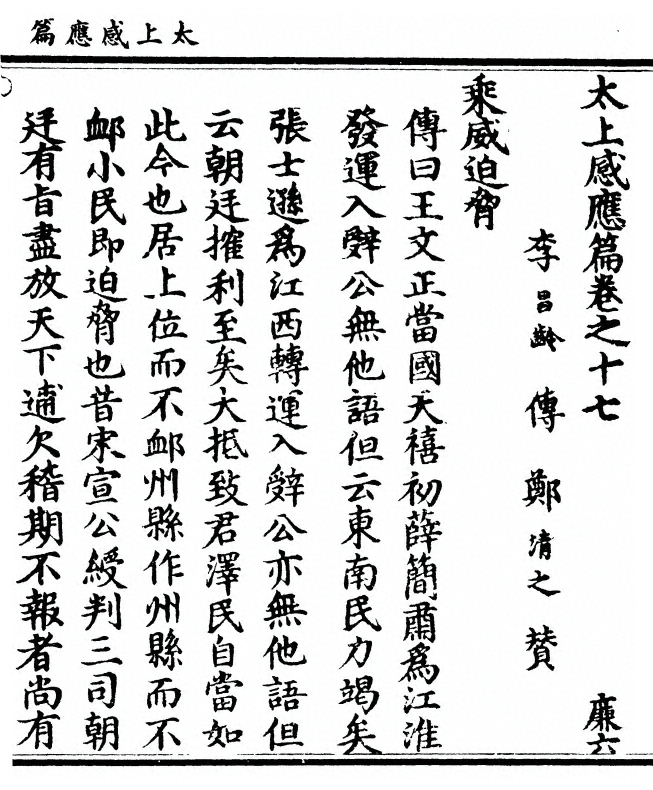 太上感應篇
太上感應篇卷之十七 廉六
李昌齡 傳 鄭清之 贊
乘威迫脅
傳曰王文正當國天禧初薛簡肅爲江淮
發運入辭公無他語但云東南民力竭矣
張士遜爲江西轉運入辭公亦無他語但
云朝廷搉利至矣大抵致君澤民自當如
此今也居上位而不卹州縣作州縣而不
卹小民即迫脅也昔宋宣公綬判三司朝
廷有旨盡放天下逋欠稽期不報者尚有